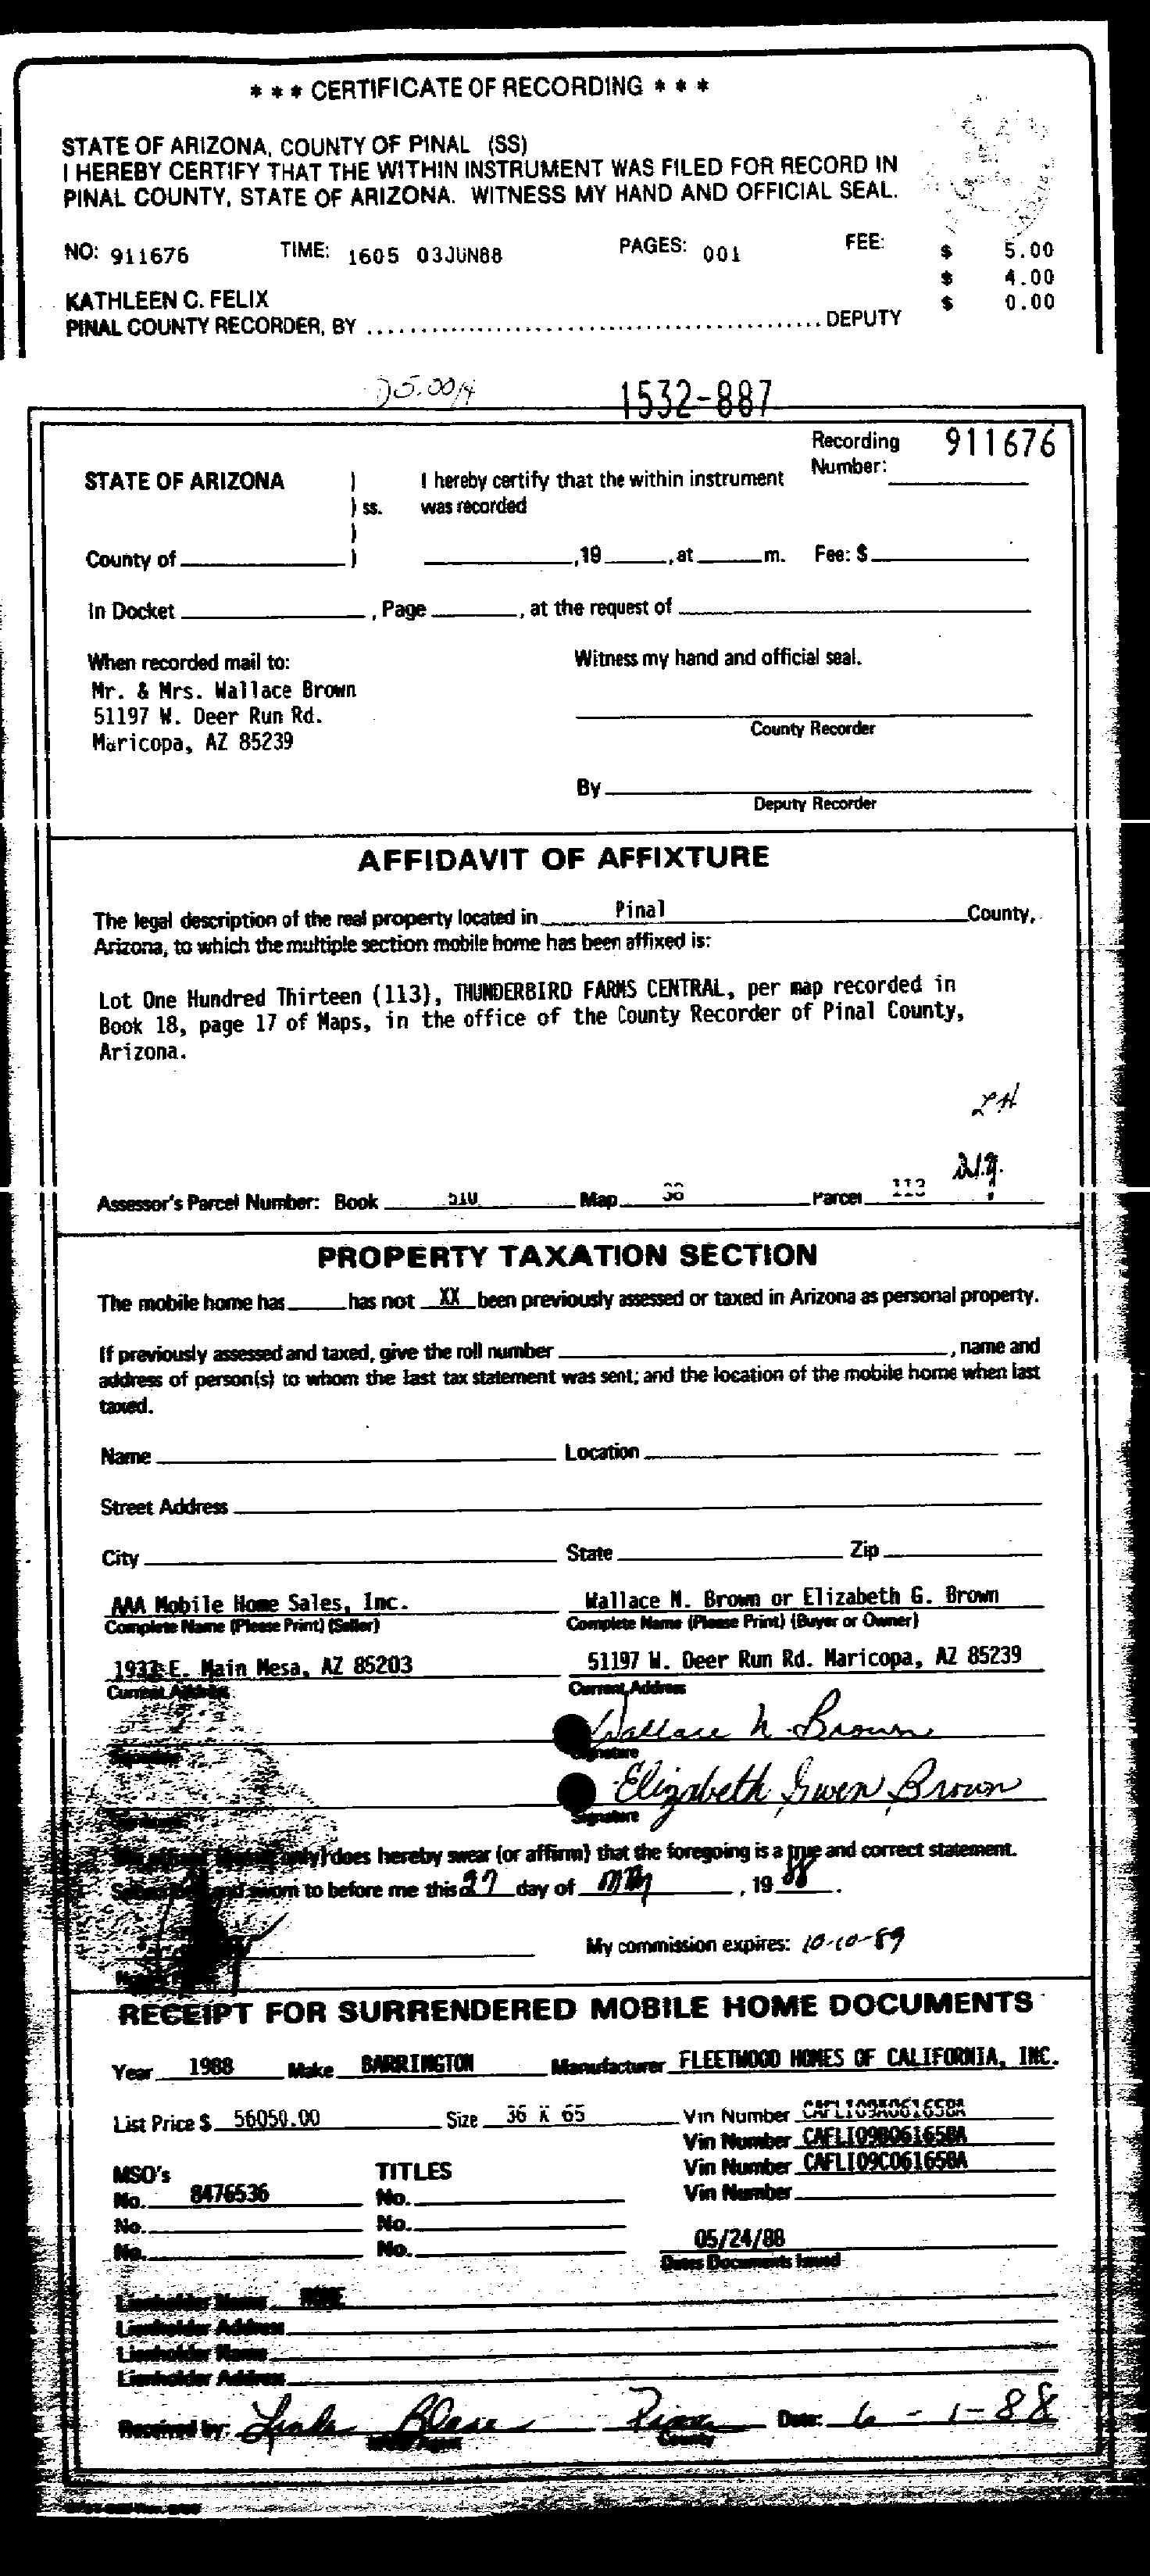 * * * CERTIFICATE OF RECORDING * * *
STATE OF ARIZONA, COUNTY OF PINAL (SS)
I HEREBY CERTIFY THAT THE WITHIN INSTRUMENT WAS FILED FOR RECORD IN
PINAL COUNTY, STATE OF ARIZONA. WITNESS MY HAND AND OFFICIAL SEAL.
NO: 911676 TIME: 1605 03JUN88 PAGES: 001 FEE: $ 5.00
$ 4.00
KATHLEEN C. FELIX $ 0.00
PINAL COUNTY RECORDER, BY ................................................ DEPUTY
1532-887
Recording Number: 911676
STATE OF ARIZONA ) I hereby certify that the within instrument
) ss. was recorded
)
County of ) ,19 , at m. Fee: $
In Docket , Page , at the request of
When recorded mail to: Witness my hand and official seal.
Mr. & Mrs. Wallace Brown
51197 W. Deer Run Rd.
Maricopa, AZ 85239
County Recorder
By
Deputy Recorder
AFFIDAVIT OF AFFIXTURE
The legal description of the real property located in Pinal County,
Arizona, to which the multiple section mobile home has been affixed is:
Lot One Hundred Thirteen (113), THUNDERBIRD FARMS CENTRAL, per map recorded in
Book 18, page 17 of Maps, in the office of the County Recorder of Pinal County,
Arizona.
Assessor's Parcel Number: Book 510 Map Parcel 113
PROPERTY TAXATION SECTION
The mobile home has has not XX been previously assessed or taxed in Arizona as personal property.
If previously assessed and taxed, give the roll number , name and
address of person(s) to whom the last tax statement was sent; and the location of the mobile home when last
taxed.
Name Location
Street Address
City State Zip
AAA Mobile Home Sales, Inc. Wallace N. Brown or Elizabeth G. Brown
Complete Name (Please Print) (Seller) Complete Name (Please Print) (Buyer or Owner)
E. Main Mesa, AZ 85203 51197 W. Deer Run Rd. Maricopa, AZ 85239
Current Address Current Address
Wallace N. Brown
Signature
Elizabeth Gwen Brown
Signature
only) does hereby swear (or affirm) that the foregoing is a true and correct statement.
and sworn to before me this 27 day of May , 19 88 .
My commission expires: 10-10-89
RECEIPT FOR SURRENDERED MOBILE HOME DOCUMENTS
Year 1988 Make BARRINGTON Manufacturer FLEETWOOD HOMES OF CALIFORNIA, INC.
List Price $ 56050.00 Size 36 X 65 Vin Number CAFLI09A06165BA
Vin Number CAFLI09B06165BA
MSO's TITLES Vin Number CAFLI09C06165BA
No. 8476536 No. Vin Number
No. No. 05/24/88
No. No. Dates Documents Issued
Lienholder Name NONE
Lienholder Address
Lienholder Name
Lienholder Address
Received by: Date: 6-1-88
County